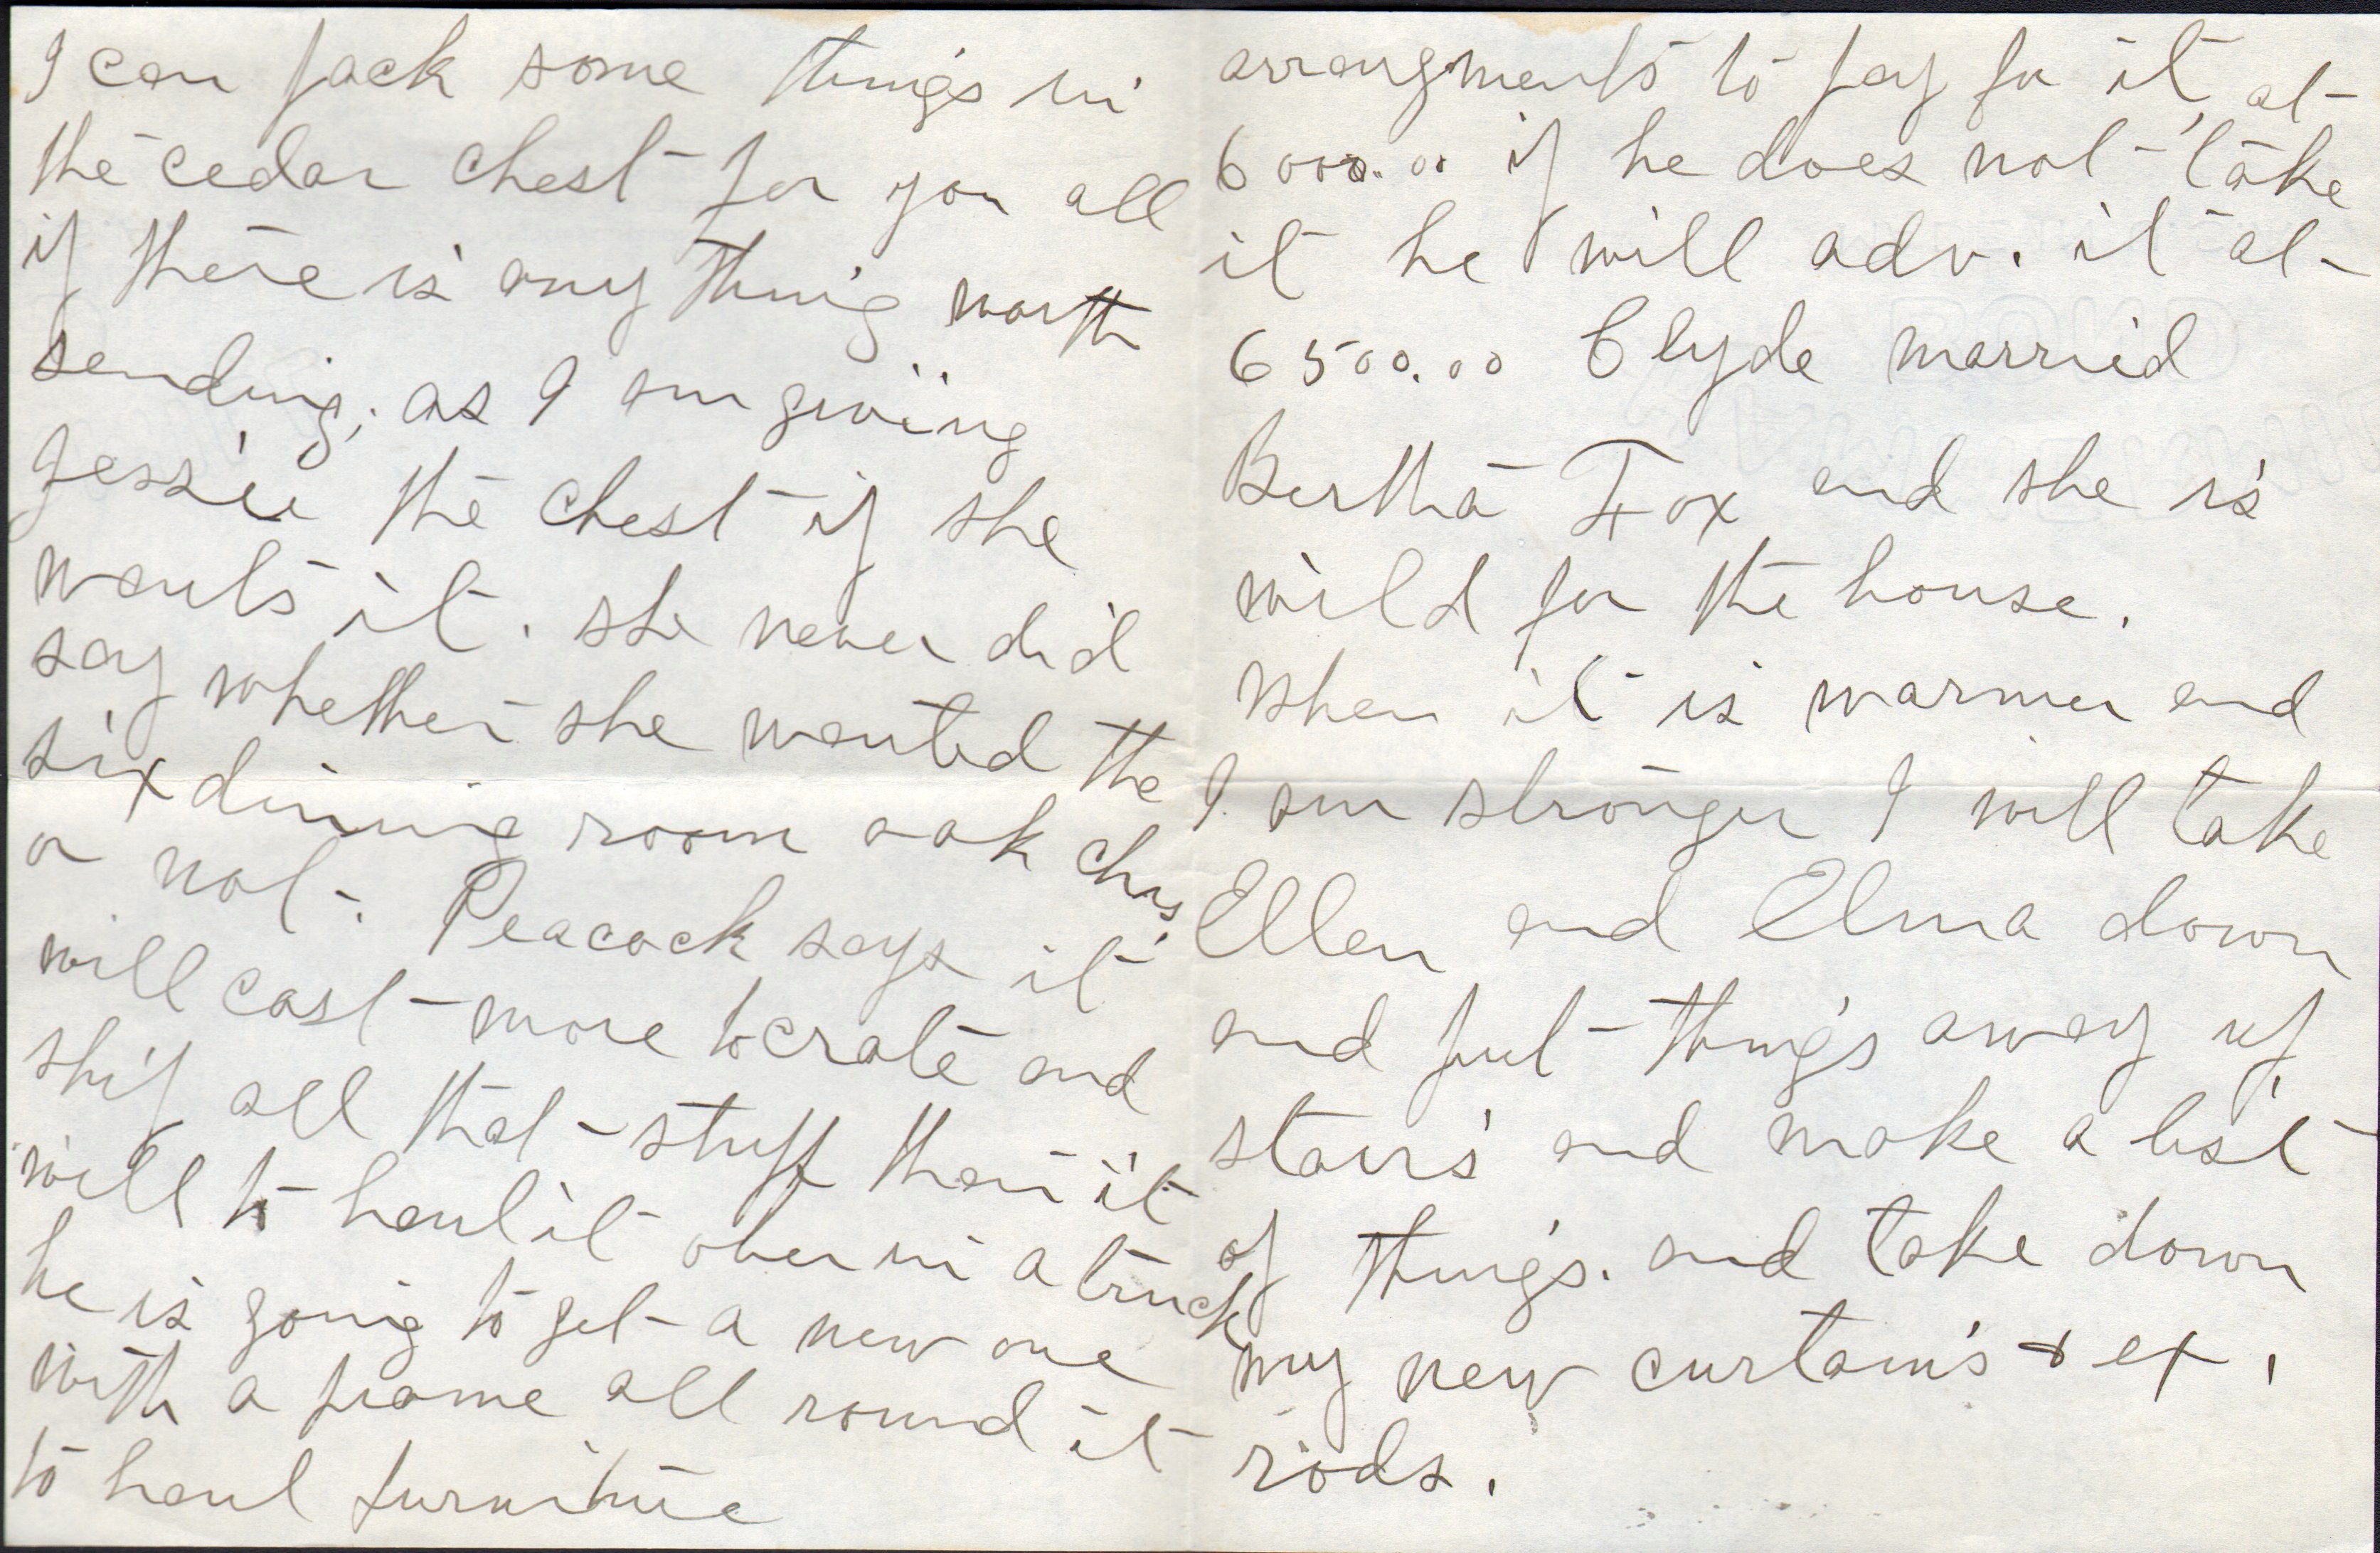 I can pack some things in
the cedar chest for you all
if there is any thing worth
sending, as I am giving
Jessie the chest if she
wants it. she never did
say whether she wanted the
six dining room oak chrs
or not. Peacock says it
will cost more to crate and
ship all that stuff then it
will to haul it over in a truck
he is going to get a new one
with a frame all round it
to haul furniture
arrangments to pay for it, at
6000.00 if he does not take
it he will adv. it at
6500.00 Clyde married
Bertha Fox and she is
wild for the house.
When it is warmer and
I am stronger I will take
Ellen and Elma down
and put things away up
stairs and make a list
of things. and take down
my new curtains + ex.
rods.